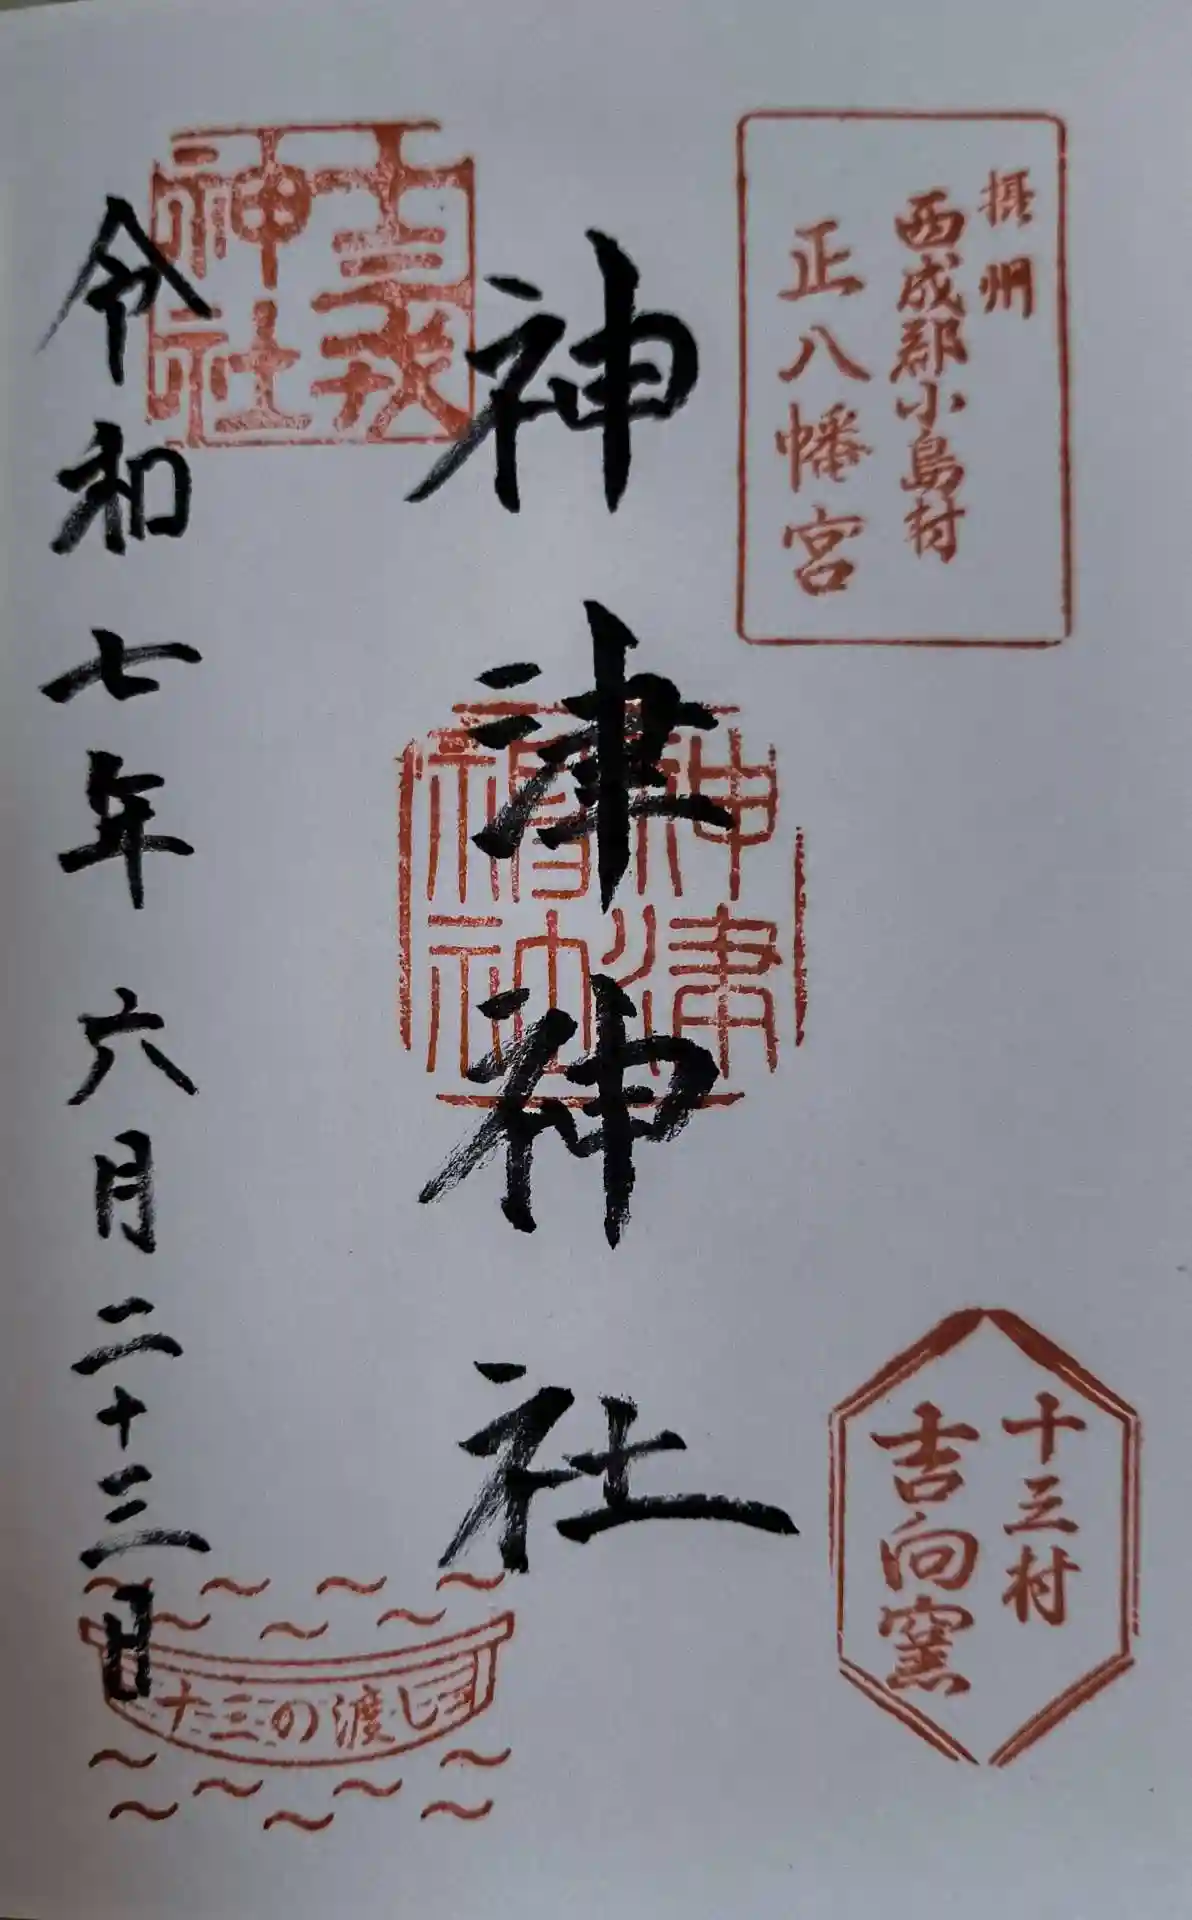 摂州
西成郡小島村
正八幡宮
十三村
吉向窯
神津神社
神津
神社
十三戎
神社
令和七年六月二十三日
十三の渡し